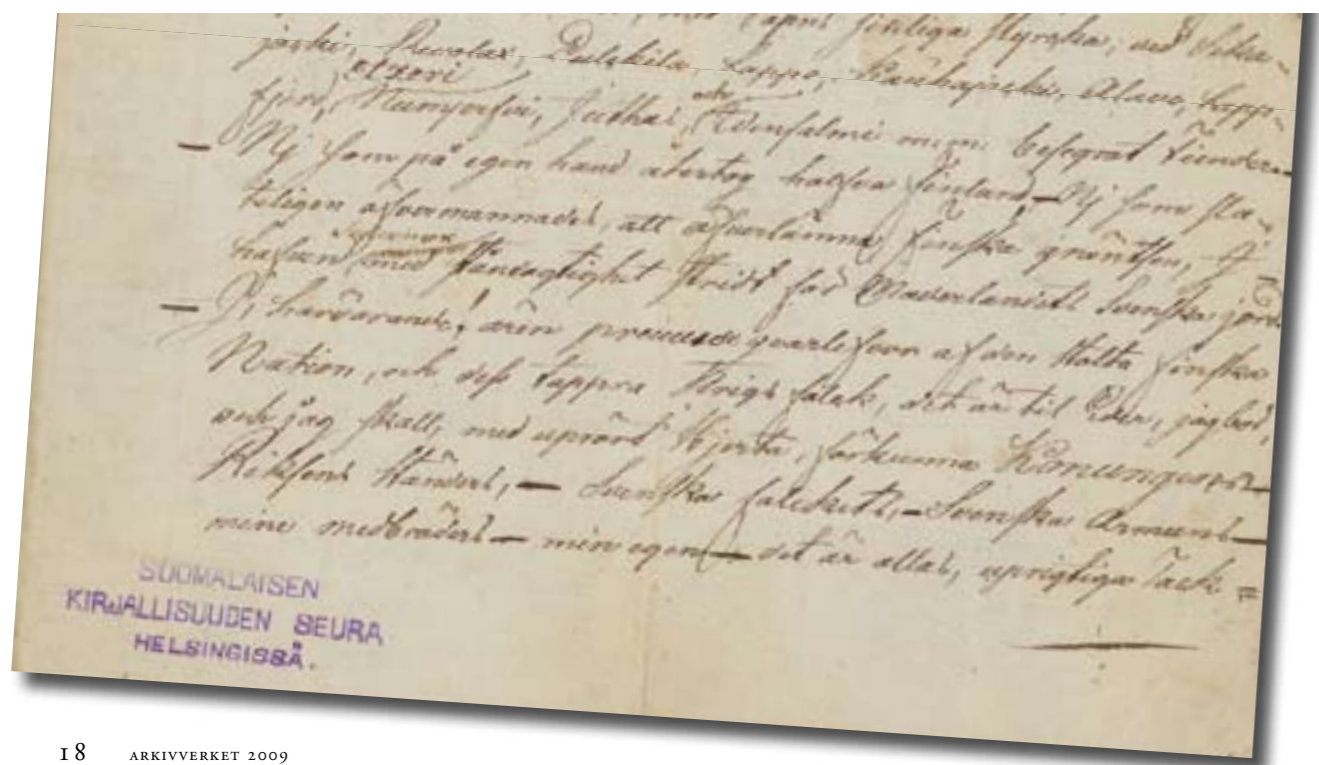 med Edra tapra sinliga styrka, vid Sika-
jocki, Revolax, Pulckila, Lappo, Kauhajocki, Alavo, Lapp-
otsori
fjerd, Numijerfvi, Juthas, och Idensalmi m.m. besegrat fiender
— Nj som på egen hand återtog halfva finland, — Nj som sla-
teligen öfvermannades, att öfverlämna finska gräntsen, J
hafven med ståndagtighet stridt för Moderlandets Svenska jord
— J, härvarande! ären qvarlefvor af den stolta finska
Nation, och dess tappra Krigs folck, det är til Eder, jag bör,
och jag skall, med uprört hjerta, förkunna Konungens —
Riksens Ständers, — Svenska folckets, — Svenska Armeens —
mine medbröders — min egen — det är allas, uprigtiga Tack =
SUOMALAISEN
KIRJALLISUUDEN SEURA
HELSINGISSÄ.
18 ARKIVVERKET 2009